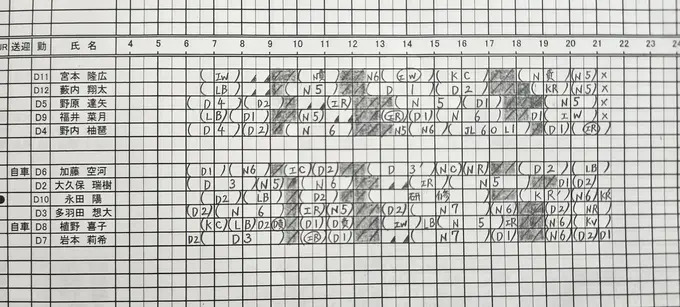 JR 送迎 勤 氏 名 4 5 6 7 8 9 10 11 12 13 14 15 16 17 18 19 20 21 22 23 24
D11 宮本 隆広 (IW) (N責) N6 (IW) (KC) (N責) (N5) ×
D12 藪内 翔太 (LB) (N5) (D1) (D2) (KR) (N5) ×
D5 野原 達矢 (D4) (D2) (IR) (N5) (D1) (N5) ×
D9 福井 菜月 (LB) (D1) (N5) (IR) (D1) (N6) (D1) IW ×
D4 野内 柚琶 (D4) (D2) (N6) N5 (N6) (JL60L1) (D1) (IR)
自車 D6 加藤 空河 (D1) (N6) (IC) (D2) (D3) (NC) (NR) (D2) (LB)
D2 大久保 瑞樹 (D3) (N5) (N6) (IR) (N5) (D1) (D2)
D10 永田 陽 (D2) (LB) (D2) (研修) (KR) (N6) KR
D3 多羽田 想大 (D2) (N6) (IR) (N5) (D2) (N7) (N6) (D2) (NR)
自車 D8 植野 喜子 (KC) (LB) D2 (D1) (D責) (IW) LB (N5) IR (N6) (KV)
D7 岩本 莉希 D2 (D3) (IR) (D1) (N7) (D1) (N6) (D2) D1